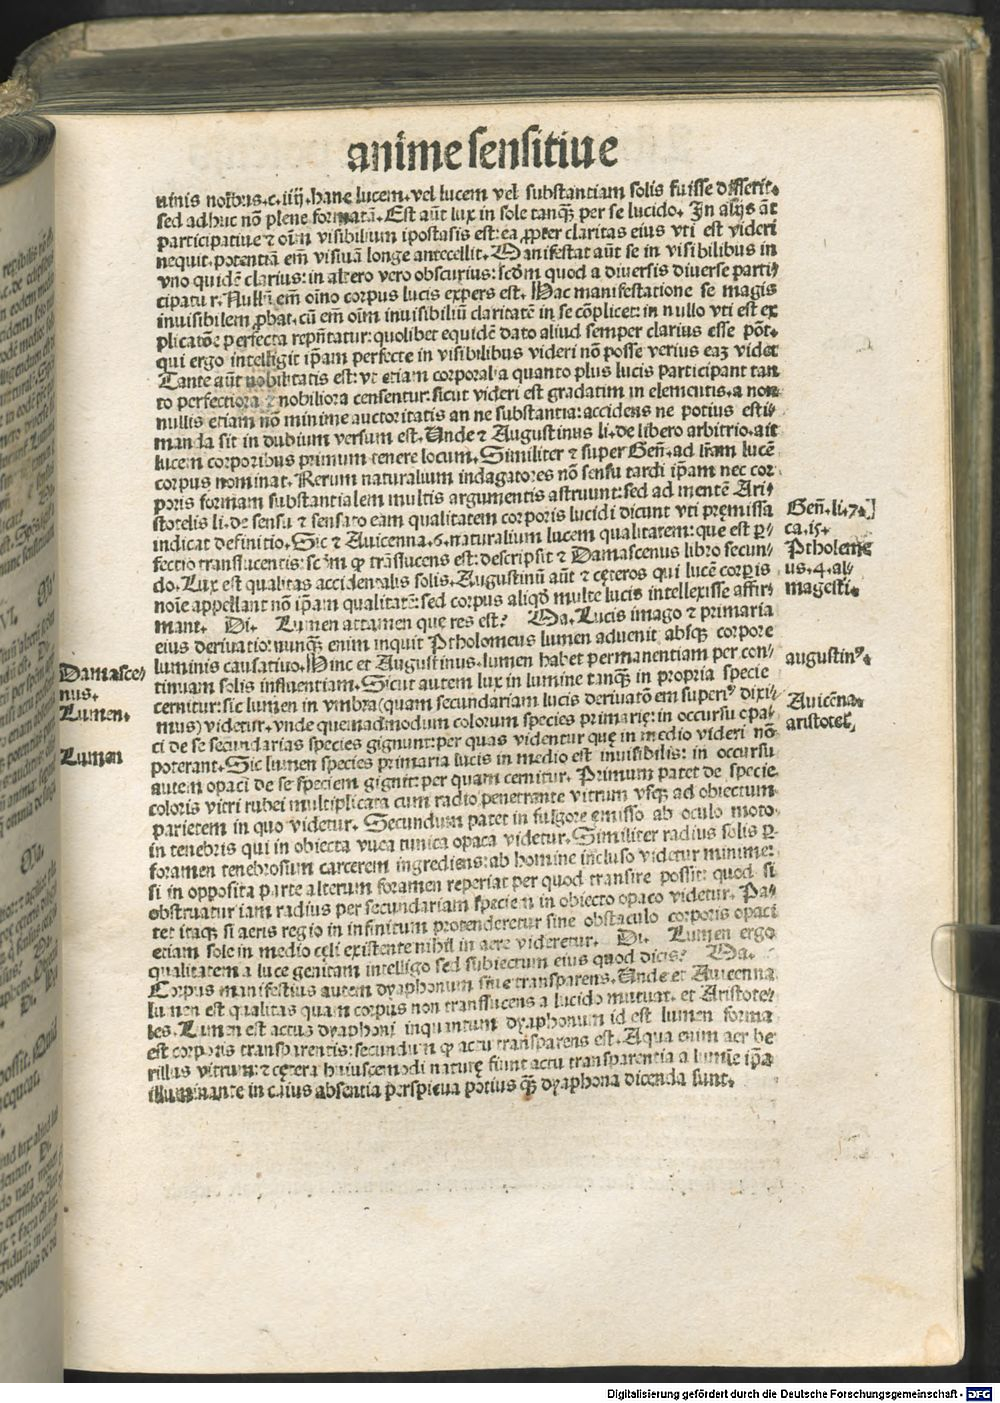 anime sensitiue
uinis noībus.c.iiij.hanc lucem.vel lucem vel substantiam solis fuisse disserit.
sed adhuc nō plene formatā.Est aūt lux in sole tanqȝ per se lucido. In alijs āt
participatiue ⁊ oīm visibilium ipostasis est: ea ꝓpter claritas eius vti est videri
nequit.potentiā em̄ visiuā longe antecellit.Manifestat aūt se in visibilibus in
vno quidē clarius: in altero vero obscurius: scd̄m quod a diuersis diuerse parti⸗
cipatur.Nullū em̄ oīno corpus lucis expers est. Hac manifestatione se magis
inuisibilem ꝓbat.cū em̄ oīm inuisibiliū claritatē in se cōplicet: in nullo vti est ex
plicatōe perfecta repn̄tatur: quolibet equidē dato aliud semper clarius esse pōt.
qui ergo intelligit ip̄am perfecte in visibilibus videri nō posse verius eaȝ videt
Tante aūt nobilitatis est: vt etiam corporalia quanto plus lucis participant tan
to perfectiora ⁊ nobiliora censentur: sicut videri est gradatim in elementis.a non
nullis etiam nō minime auctoritatis an ne substantia: accidens ne potius esti⸗
manda sit in dubium versum est.Unde ⁊ Augustinus li.de libero arbitrio.ait
lucem corporibus primum tenere locum. Similiter ⁊ super Geñ.ad lr̄am lucē
corpus nominat.Rerum naturalium indagatores nō sensu tardi ip̄am nec cor
poris formam substantialem multis argumentis astruunt: sed ad mentē Ari⸗
stotelis li.de sensu ⁊ sensato eam qualitatem corporis lucidi dicunt vti pręmissa
indicat definitio. Sic ⁊ Auicenna.6.naturalium lucem qualitatem: que est ꝑ⸗
fectio translucentis: scd̄m ꝙ trāslucens est: descripsit ⁊ Damascenus libro secun⸗
do.Lux est qualitas accidentalis solis.Augustinū aūt ⁊ cęteros qui lucē corꝑis
noīe appellant nō ip̄am qualitatē: sed corpus aliqd̄ multe lucis intellexisse affir⸗
mant. Di. Lumen attamen que res est? Ma.Lucis imago ⁊ primaria
eius deriuatio: nunqȝ enim inquit Ptholomeus lumen aduenit absqȝ corpore
luminis causatiuo.Hinc et Augustinus.lumen habet permanentiam per con⸗
tinuam solis influentiam.Sicut autem lux in lumine tanqȝ in propria specie
cernitur: sic lumen in vmbra(quam secundariam lucis deriuatōem superiꝰ dixi⸗
mus)videtur.vnde quemadmodum colorum species primarię: in occursu opa⸗
ci de se secundarias species gignunt: per quas videntur quę in medio videri nō
poterant.Sic lumen species primaria lucis in medio est inuisibilis: in occursu
autem opaci de se speciem gignit: per quam cernitur. Primum patet de specie
coloris vitri rubei multiplicata cum radio penetrante vitrum vsqȝ ad obiectum
parietem in quo videtur. Secundum patet in fulgore emisso ab oculo moto
in tenebris qui in obiecta vuea tunica opaca videtur.Similiter radius solis ꝑ
foramen tenebrosum carcerem ingrediens: ab homine incluso videtur minime:
si in opposita parte alterum foramen reperiat per quod transire possit: quod si
obstruatur iam radius per secundariam speciem in obiecto opaco videtur. Pa⸗
tet itaqȝ si aeris regio in infinitum protenderetur sine obstaculo corporis opaci
etiam sole in medio cęli existente nihil in aere videretur. Di. Lumen ergo
qualitatem a luce genitam intelligo sed subiectum eius quod dicis? Ma.
Corpus manifestius autem dyaphonum siue transparens.Unde et Auicenna
lumen est qualitas quam corpus non translucens a lucido mutuat. et Aristote⸗
les.Lumen est actus dyaphoni inquantum dyaphonum id est lumen forma
est corporis transparentis: secundum ꝙ actu transparens est.Aqua enim aer be
rillus vitrum: ⁊ cętera huiuscemodi naturę fiunt actu transparentia a lumīe ip̄a
illuminante in cuius absentia perspicua potius qȝ dyaphona dicenda sunt.
Geñ.li.7.
ca.15.
Ptholeme
us.4.al⸗
magesti.
augustinꝰ.
Auicēna.
aristotel.
Damasce⸗
nus.
Lumen.
Lumen
Digitalisierung gefördert durch die Deutsche Forschungsgemeinschaft - DFG